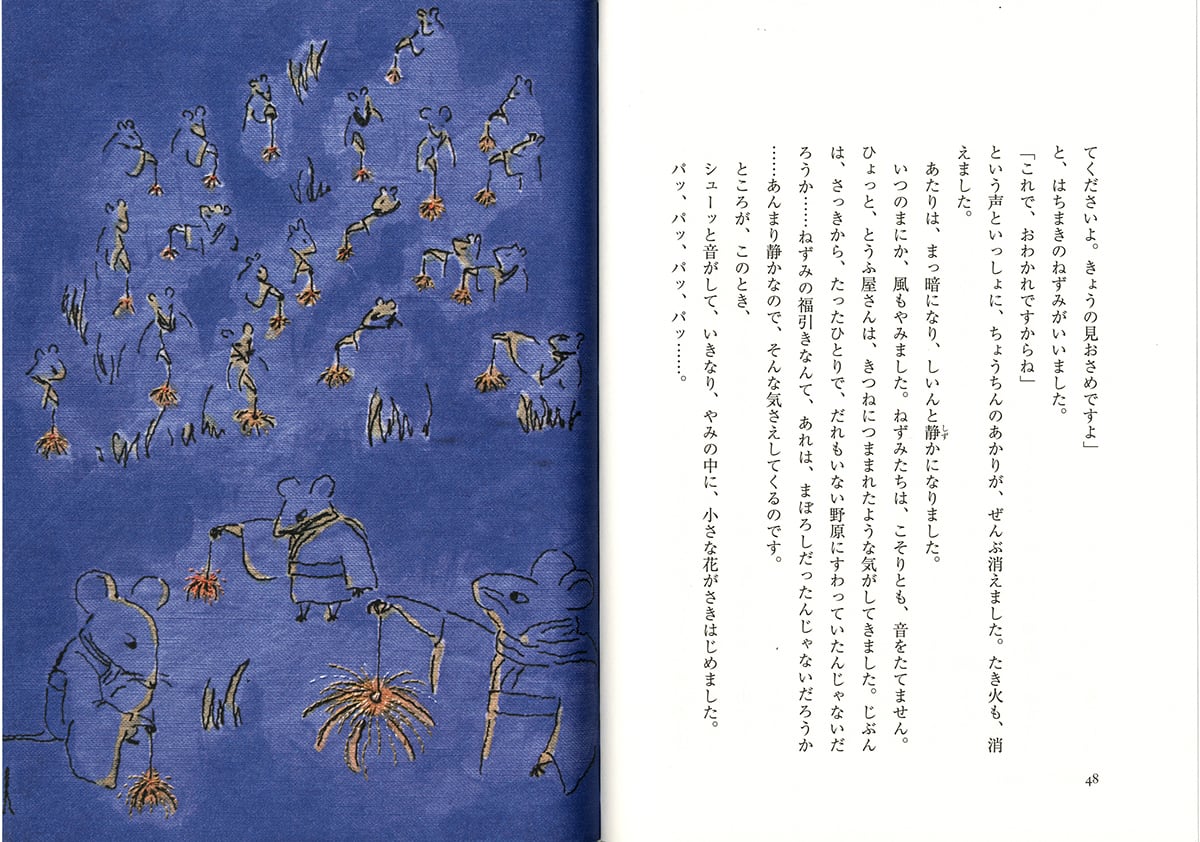 てくださいよ。きょうの見おさめですよ」
と、はちまきのねずみがいいました。
「これで、おわかれですからね」
という声といっしょに、ちょうちんのあかりが、ぜんぶ消えました。たき火も、消
えました。
あたりは、まっ暗になり、しいんと静かになりました。
いつのまにか、風もやみました。ねずみたちは、こそりとも、音をたてません。
ひょっと、とうふ屋さんは、きつねにつままれたような気がしてきました。じぶん
は、さっきから、たったひとりで、だれもいない野原にすわっていたんじゃないだ
ろうか……ねずみの福引きなんて、あれは、まぼろしだったんじゃないだろうか
……あんまり静かなので、そんな気さえしてくるのです。
ところが、このとき、
シューッと音がして、いきなり、やみの中に、小さな花がさきはじめました。
パッ、パッ、パッ、パッ……。
48